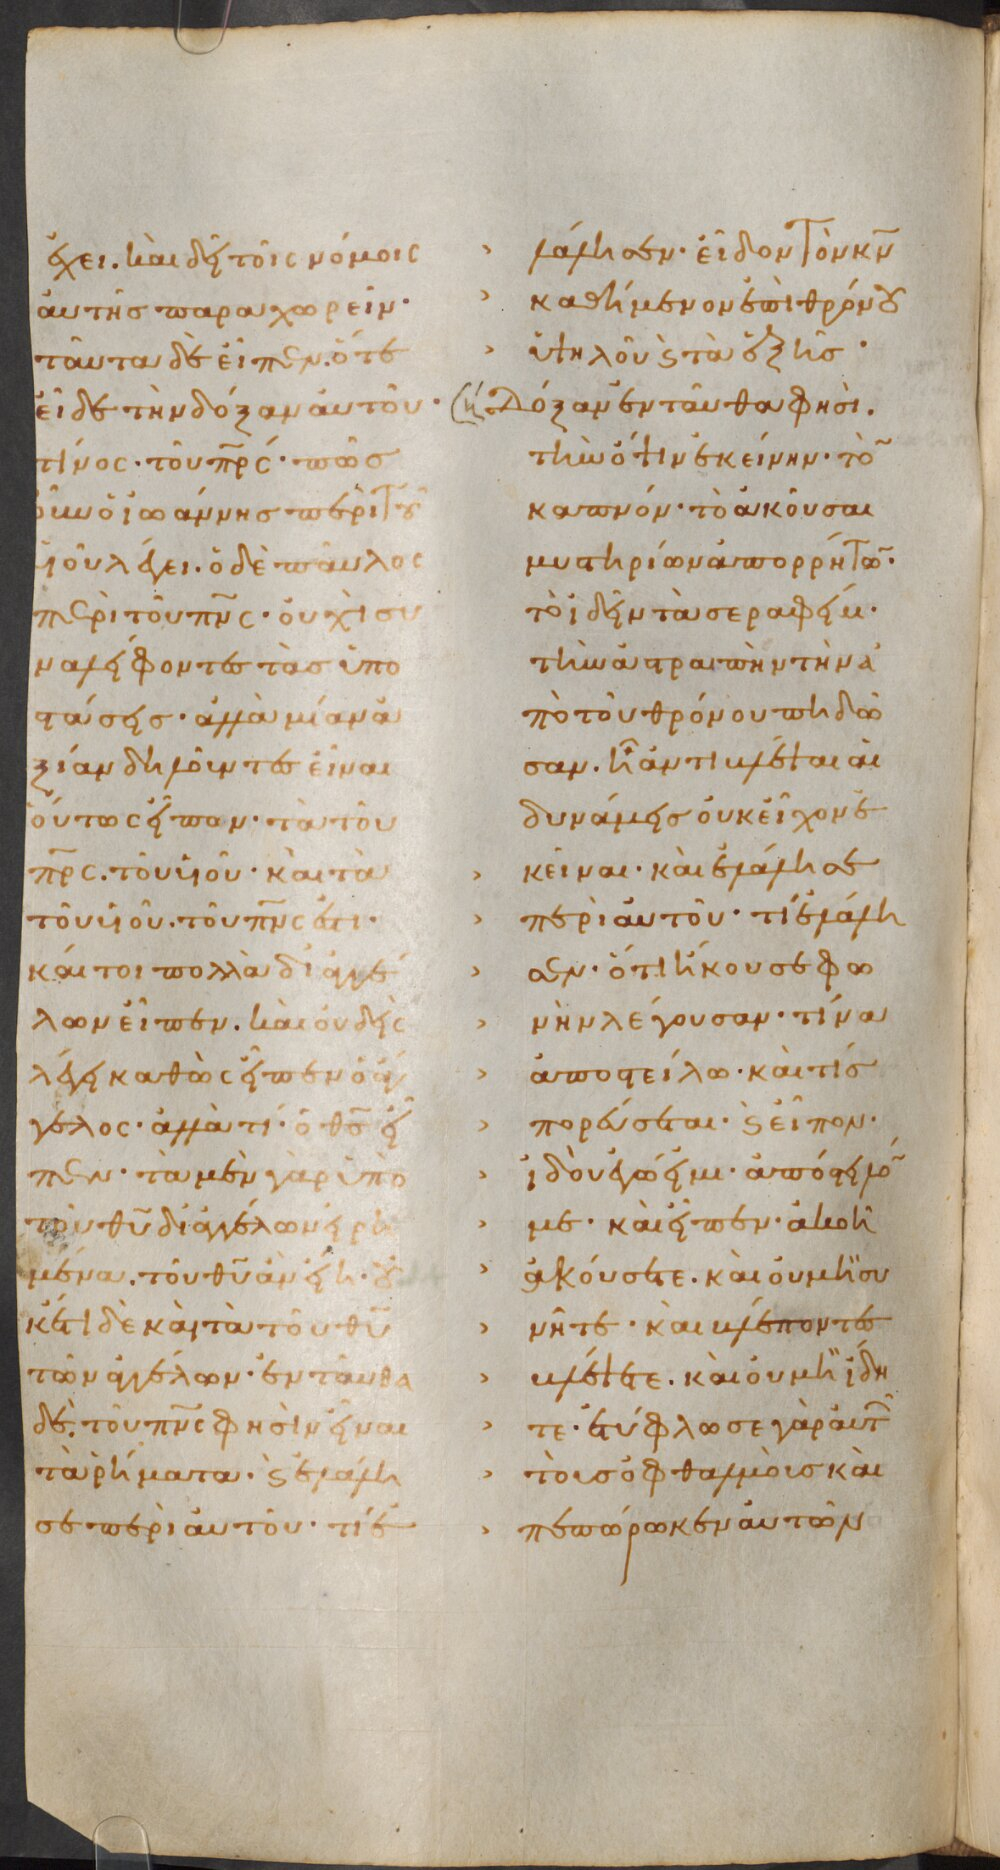 ἔχει. καὶ δεῖ τοῖς νόμοις
αὐτῆς παραχωρεῖν·
ταῦτα δὲ εἶπεν. ὅτε
εἶδε τὴν δόξαν αὐτοῦ·
τίνος· τοῦ πρς· πῶς
οὖν ὁ ἰωάννης περὶ τοῦ
υἱοῦ λέγει. ὁ δὲ παῦλος
περὶ τοῦ πνς· οὐχὶ συ
ναλείφοντες τὰς ὑπο
στάσεις· ἀλλὰ μίαν ἀ
ξίαν δηλοῦντες εἶναι
οὕτως εἶπαν· τὰ τοῦ
πρς. τοῦ υἱοῦ· καὶ τὰ
τοῦ υἱοῦ. τοῦ πνς ἐστι·
καί τοι πολλὰ δι ἀγγέ
λων εἶπεν. καὶ οὐδεὶς
λέγει καθὼς εἶπεν ὁ ἄγ
γελος· ἀλλὰ τί· ὁ θς εἶ
πεν· τὰ μὲν γὰρ ὑπὸ
τοῦ θυ δι ἀγγέλων εἰρη
μένα. τοῦ θυ ἂν εἴη· οὐ
κέτι δὲ καὶ τὰ τοῦ θυ
τῶν ἀγγέλων· ἐνταῦθα
δὲ. τοῦ πνς φησὶν εἶναι
τὰ ρήματα· καὶ ἐλάλη
σε περὶ αὐτοῦ· τί ἐ
λάλησεν· εἶδον τὸν κν
καθήμενον ἐπὶ θρόνου
ὑψηλοῦ καὶ τὰ ἑξῆς·
Δόξαν ἐνταῦθα φησὶ.
τὴν ὄψιν ἐκείνην· τὸν
καπνόν· τὸ ἀκοῦσαι
μυστηρίων ἀπορρήτων·
τὸ ἰδεῖν τὰ σεραφείμ·
τὴν ἀστραπὴν τὴν ἀ
πὸ τοῦ θρόνου πηδῶ
σαν. ᾗ ἀντιβλέψαι αἱ
δυνάμεις οὐκ εἶχον ἐ
κεῖναι· καὶ ἐλάλησε
περὶ αὐτοῦ· τί ἐλάλη
σεν· ὅτι ἤκουσε φω
νὴν λέγουσαν· τίνα
ἀποστείλω· καὶ τίς
πορεύσεται· καὶ εἶπον·
ἰδοὺ ἐγώ εἰμι· ἀπόστειλόν
με· καὶ εἶπεν· ἀκοῆ
ἀκούσετε. καὶ οὐ μὴ συ
νῆτε· καὶ βλέποντες
βλέψετε. καὶ οὐ μὴ ἴδη
τε· ἐτύφλωσε γὰρ αὐτῶν
τοὺς ὀφθαλμοὺς καὶ
πεπώρωκεν αὐτῶν